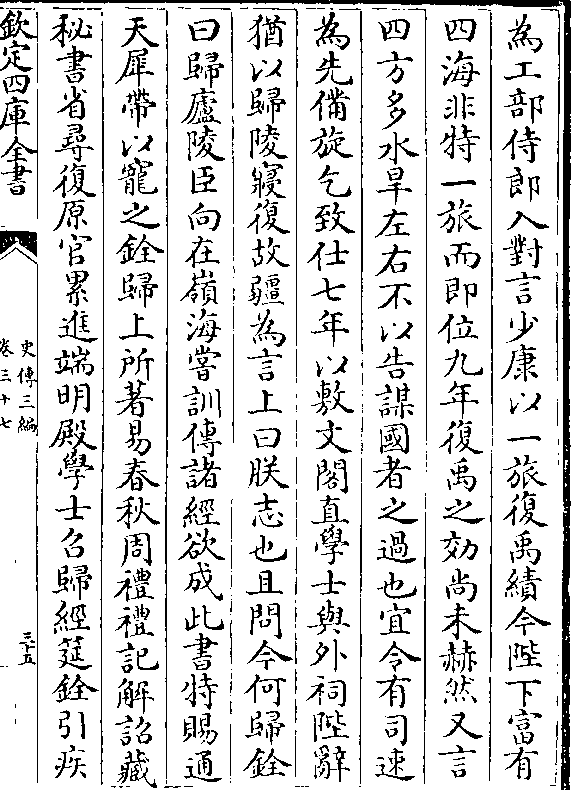 為工部侍郎入對言少康以一旅復禹績今陛下富有
四海非特一旅而即位九年復禹之効尚未赫然又言
四方多水旱左右不以告謀國者之過也宜令有司速
為先備旋乞致仕七年以敷文閣直學士與外祠陛辭
猶以歸陵寢復故疆為言上曰朕志也且問今何歸銓
曰歸廬陵臣向在嶺海嘗訓傳諸經欲成此書特賜通
天犀帶以寵之銓歸上所著易春秋周禮禮記解詔藏
秘書省尋復原官累進端明殿學士召歸經筵銓引疾
欽定四庫全書
史傳三編
卷三十七
三十五